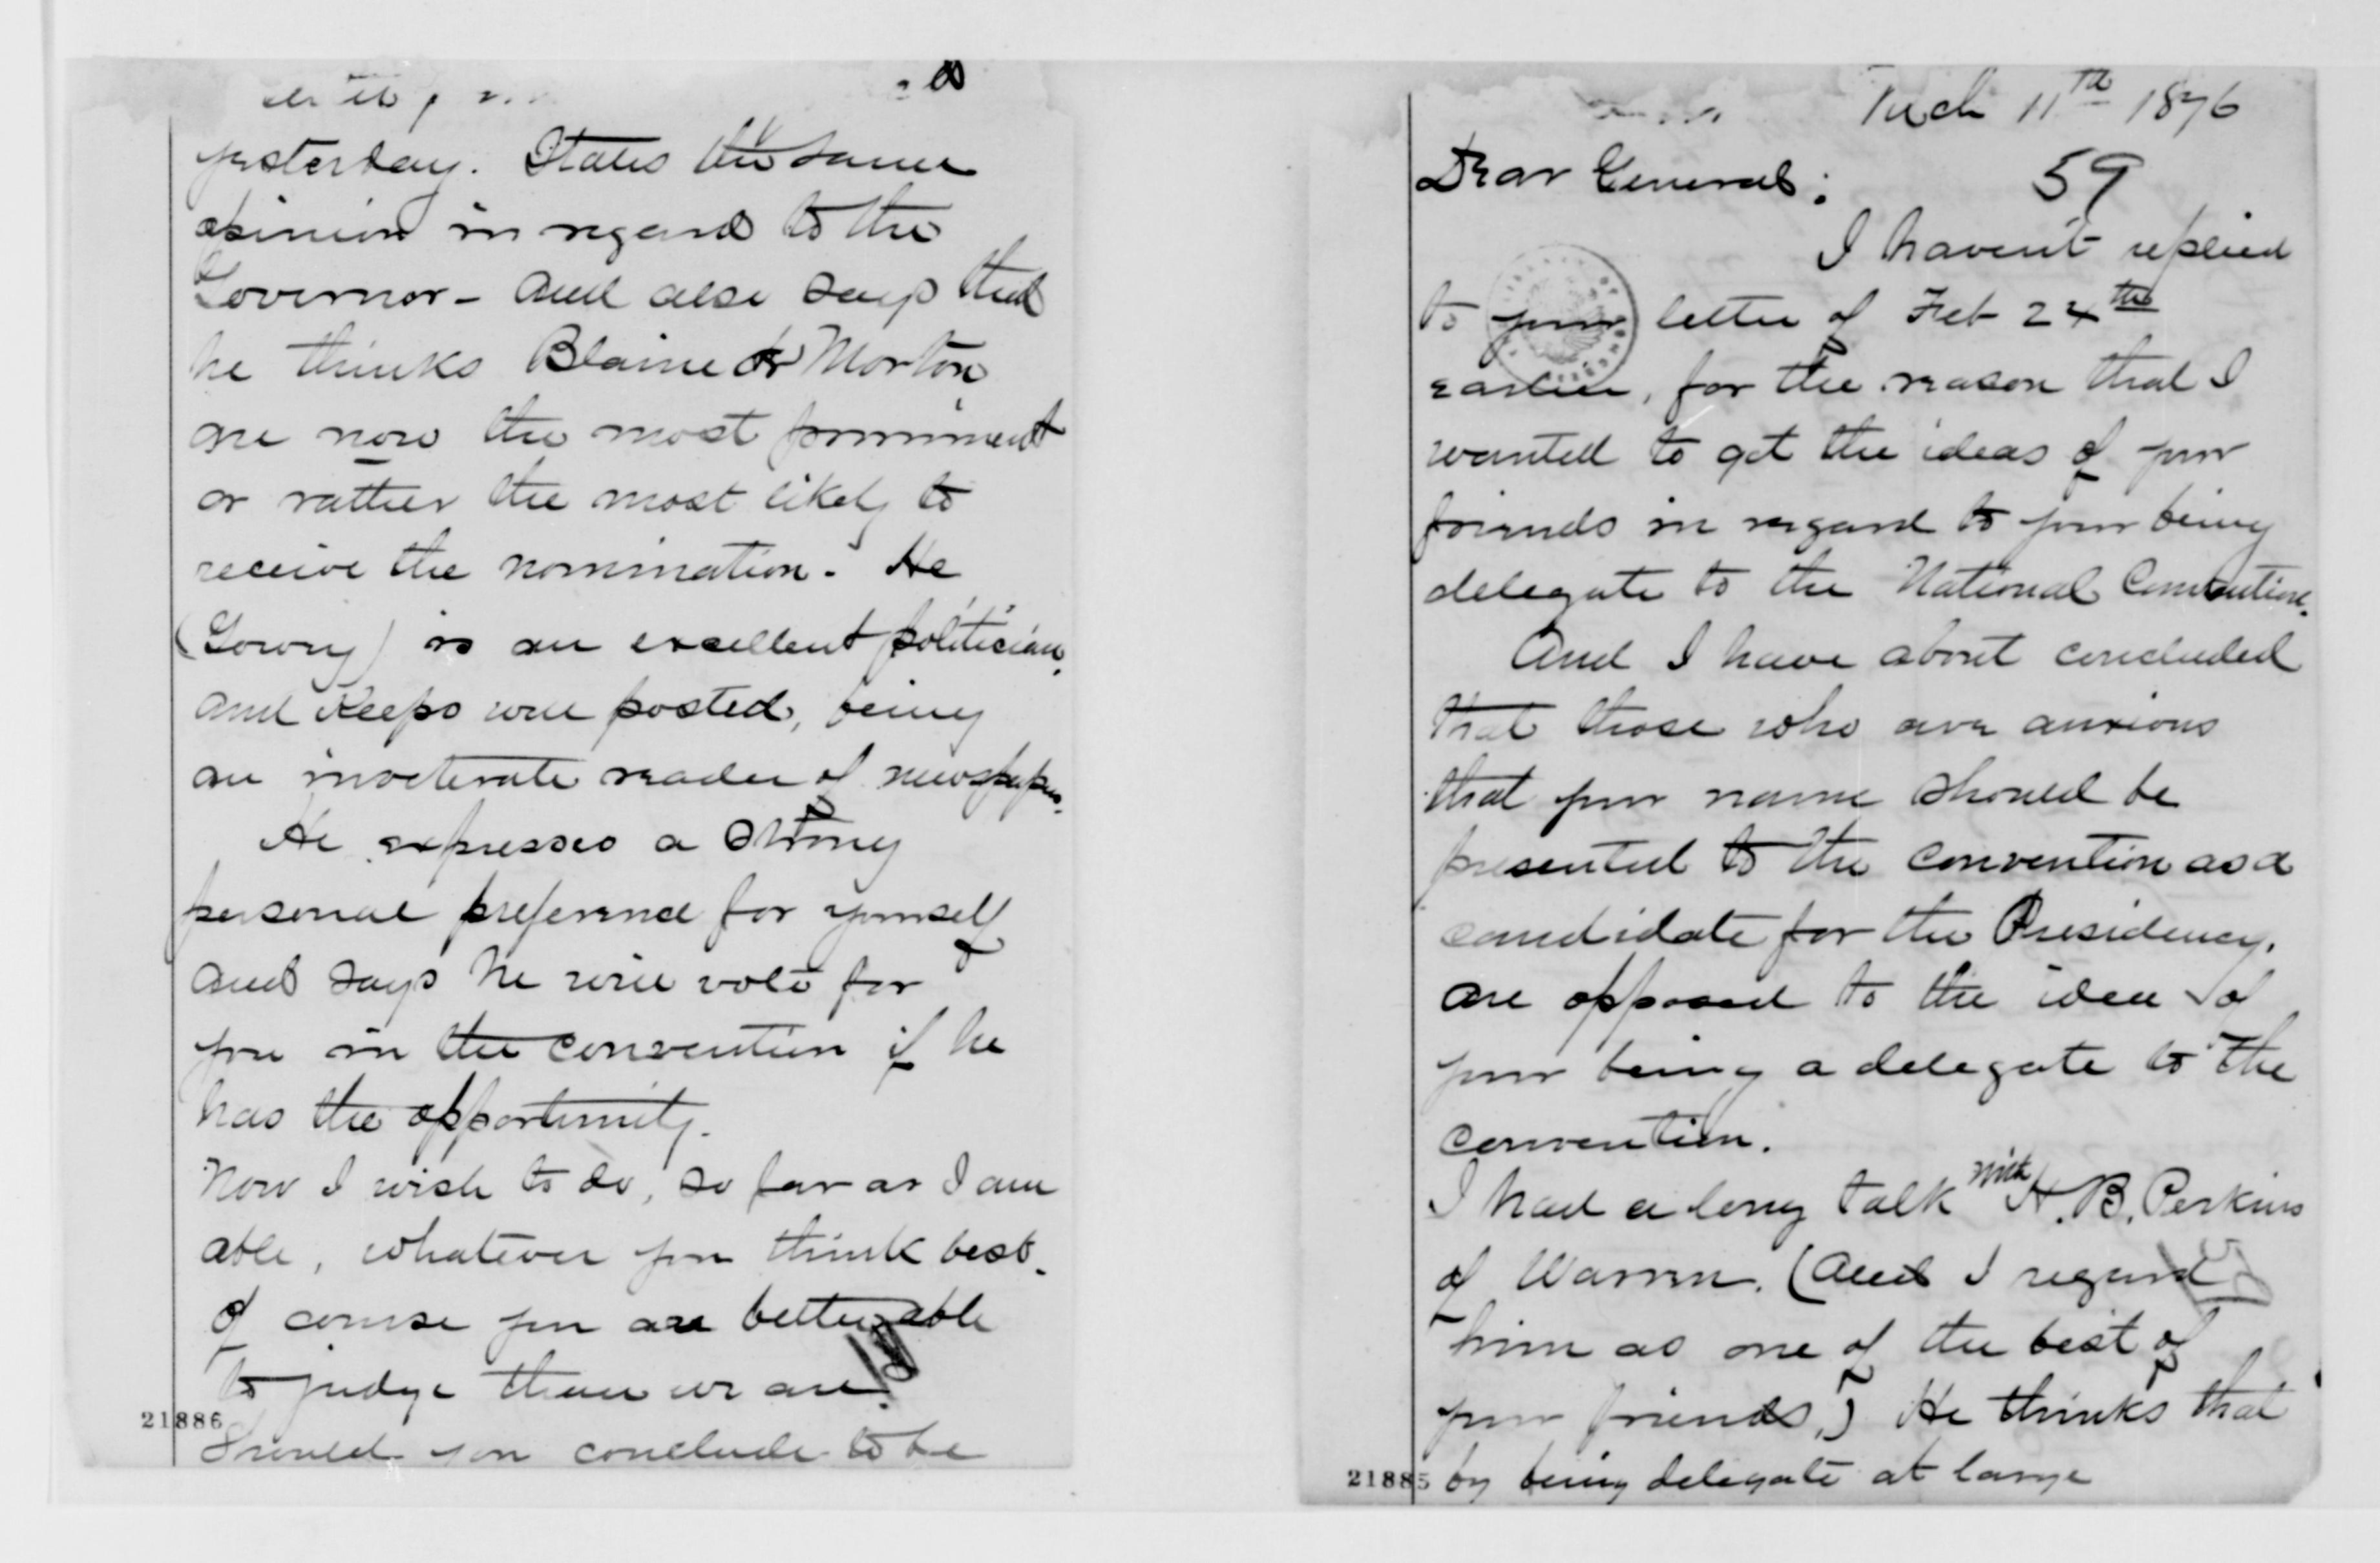 yesterday. States the same
opinion in regard to the
Governor - and also says that
he thinks Blaine or Morton
are now the most prominent
or rather the most likely to
receive the nomination. He
(Lowry) is an excellent politician,
and keeps well posted, being
an inveterate reader of newspapers.
He expresses a strong
personal preference for yourself
and says he will vote for
you in the convention if he
has the opportunity.
Now I wish to do, so far as I am
able, whatever you think best.
Of course you are better able
to judge than we are.
21886
Should you conclude to be
11th 1876
Dear General:
59
I havent replied
to your letter of Feb 24th
earlier, for the reason that I
wanted to get the ideas of your
friends in regard to your being
delegate to the National Convention.
And I have about concluded
that those who are anxious
that your name should be
presented to the convention as a
candidate for the Presidency,
are opposed to the idea of
your being a delegate to the
convention.
I had a long talk with H. B. Perkins
of Warren. (And I regard
him as one of the best of
your friends,) He thinks that
21885 by being delegate at large